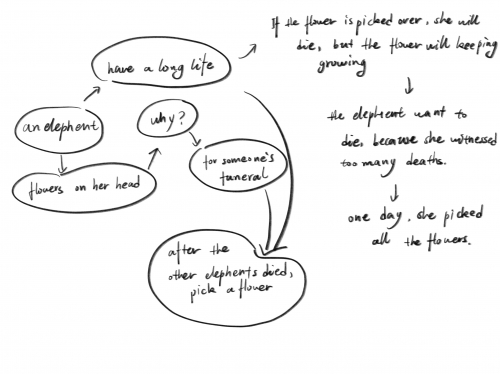 have a long life
an elephent
why?
flowers on her head
for someone's
funeral
after the
other elephents died,
pick a flower
If the flower is picked over, she will
die, but the flower will keeping
growing
the elephent want to
die, because she witnessed
too many deaths.
one day, she picked
all the flowers.